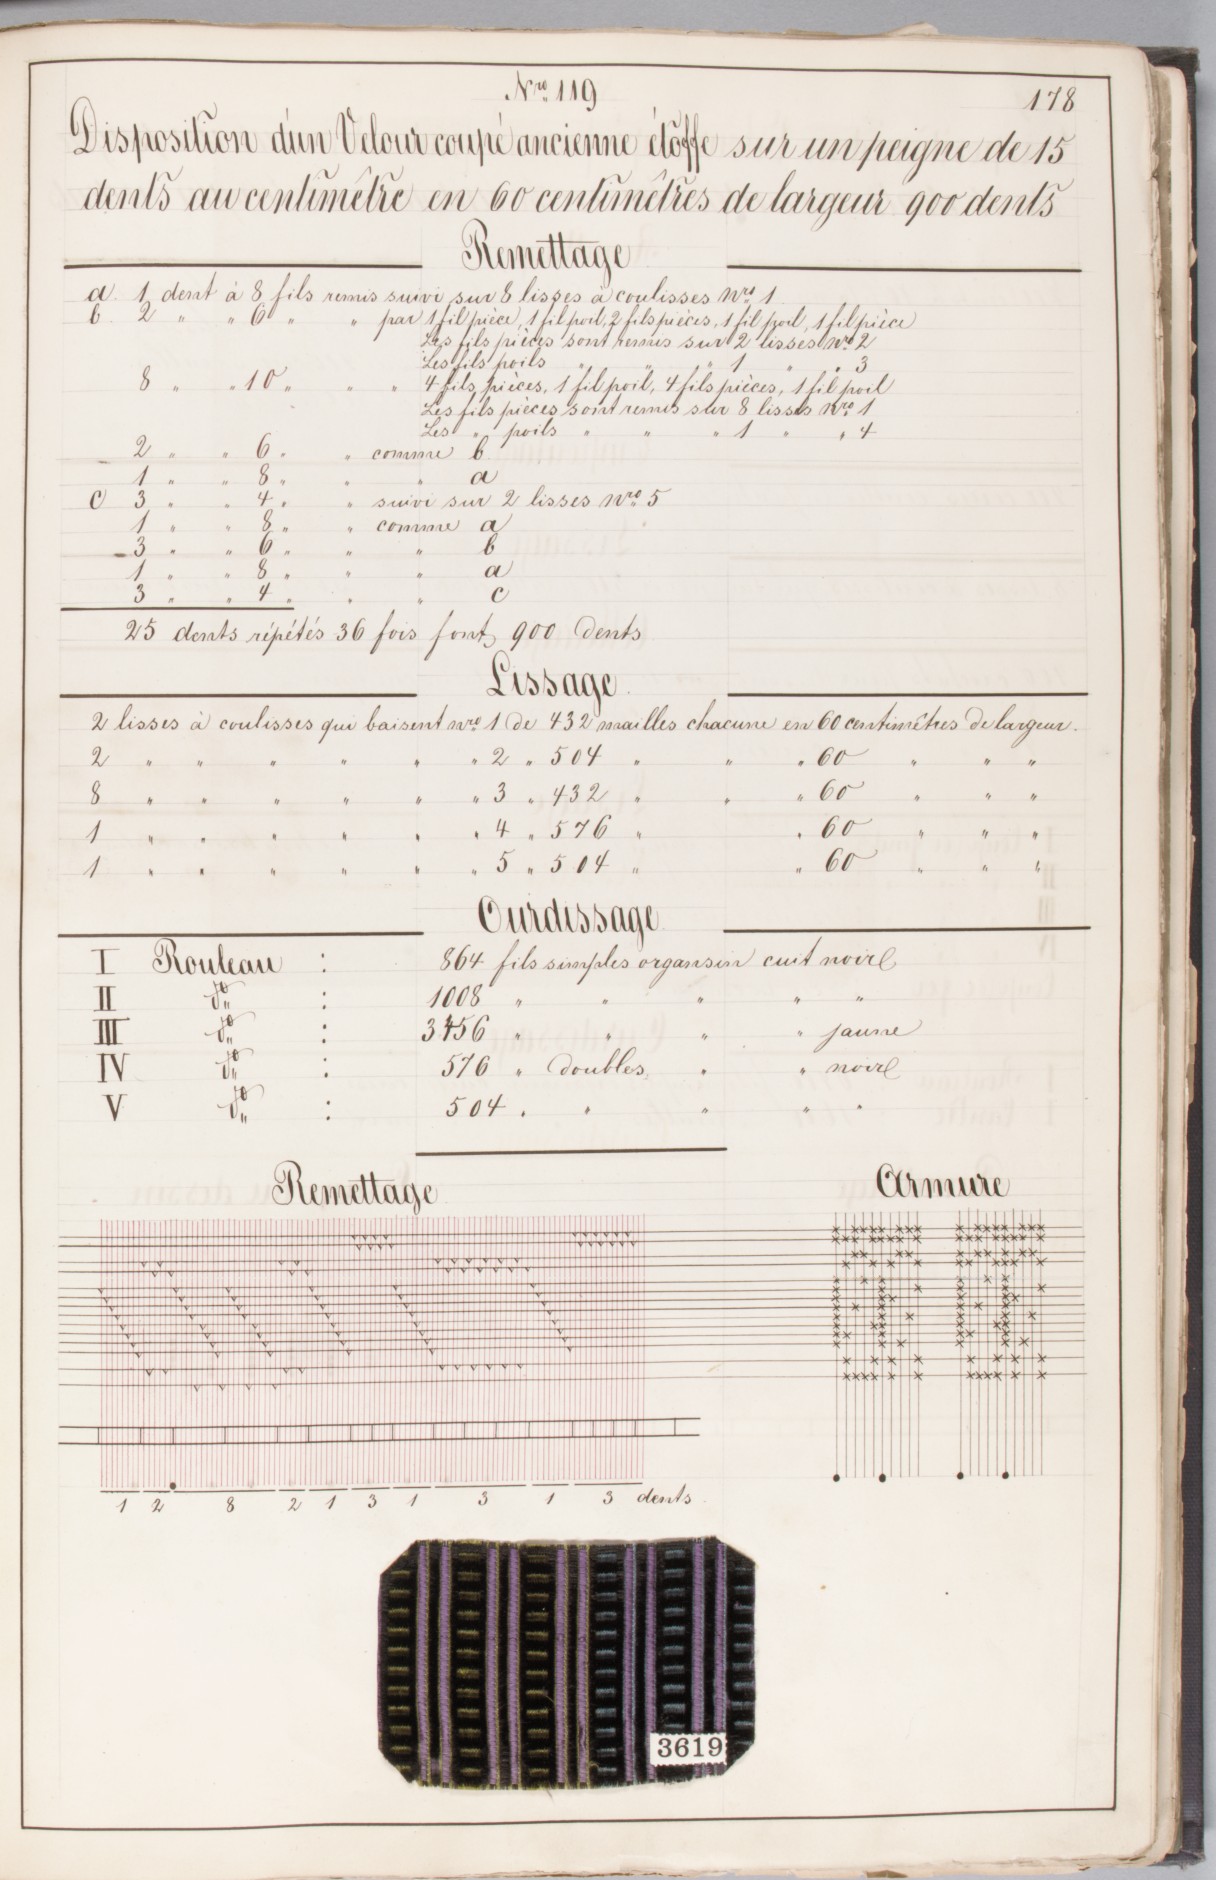 Nro. 119
178
Disposition d'un Velour coupé ancienne étoffe sur un peigne de 15
dents au centimêtre en 60 centimêtres de largeur 900 dents
Remettage
a. 1 dent à 8 fils remis suivi sur 8 lisses à coulisses Nro. 1
b. 2 " " 6 " " par 1 fil pièce, 1 fil poil, 2 fils pièces, 1 fil poil, 1 fil pièce
Les fils pièces sont remis sur 2 lisses Nro. 2
Les fils poils " " " 1 " " 3
8 " " 10 " " " 4 fils pièces, 1 fil poil, 4 fils pièces, 1 fil poil
Les fils pièces sont remis sur 8 lisses Nro. 1
Les " poils " " " 1 " " 4
2 " " 6 " " comme b
1 " " 8 " " " a
c 3 " " 4 " " suivi sur 2 lisses Nro. 5
1 " " 8 " " comme a
3 " " 6 " " " b
1 " " 8 " " " a
3 " " 4 " " " c
25 dents répétés 36 fois font 900 Dents
Lissage
2 lisses à coulisses qui baisent nro. 1 de 432 mailles chacune en 60 centimêtres de largeur.
2 " " " " " " 2 " 504 " " " 60 " " "
8 " " " " " " 3 " 432 " " " 60 " " "
1 " " " " " " 4 " 576 " " 60 " " "
1 " " " " " " 5 " 504 " " 60 " " "
Ourdissage
I Rouleau : 864 fils simples organsin cuit noire
II do " : 1008 " " " " "
III do " : 3456 " " " " jaune
IV do " : 576 " doubles " " noire
V do " : 504 " " " " "
Remettage
Armure
1 2 8 2 1 3 1 3 1 3 dents
3619